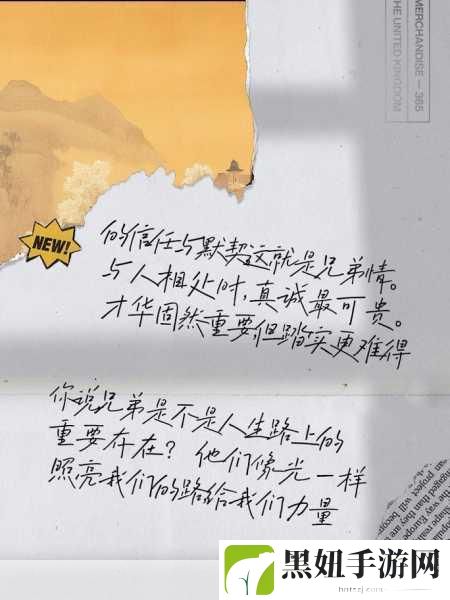 MERCHANDISE — 365
THE UNITED KINGDOM
NEW!
的信任与默契这就是兄弟情。
与人相处时,真诚最可贵。
才华固然重要,但踏实更难得
你说兄弟是不是人生路上的
重要存在? 他们像光一样
照亮我们的路给我们力量
project will
engaged than they
the way Europe
shape
黑妞手游网
hntsrj.com